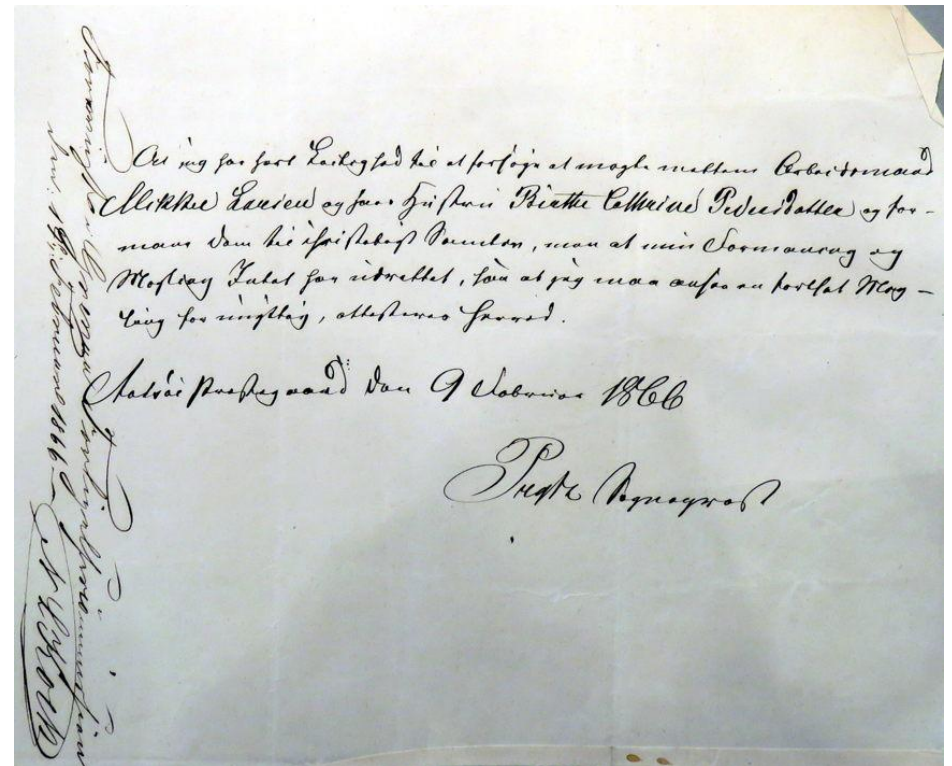 At jeg har havt Leilighed til at forsøge at mægle mellem Arbeidsmand
Mikkel Larsen og hans Hustru Birthe Cathrine Pedersdatter og for-
mane dem til christeligt Samliv, men at min Formaning og
Mægling Intet har udrettet, saa at jeg maa ansee en fortsat Mæg-
ling for unyttig, attesteres herved.
Præstegaard den 9 Februar 1866
Sognepræst
Forevist i
den Februar 1866